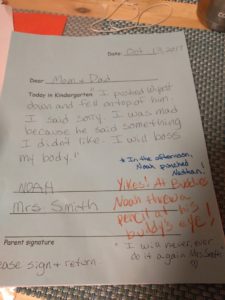 Date: Oct 19, 2017
Dear Mom & Dad
Today in Kindergarten "I pushed Wyatt
down and fell on top of him.
I said sorry. I was mad
because he said something
I didn't like. I will boss
my body."
* In the afternoon,
Noah punched
Nathan!
NOAH
Mrs. Smith
Yikes! At Buddies
Noah threw a
pencil at his
buddy's eye!
Parent signature
"I will never, ever
do it again Mrs. Smith"
ease sign & return